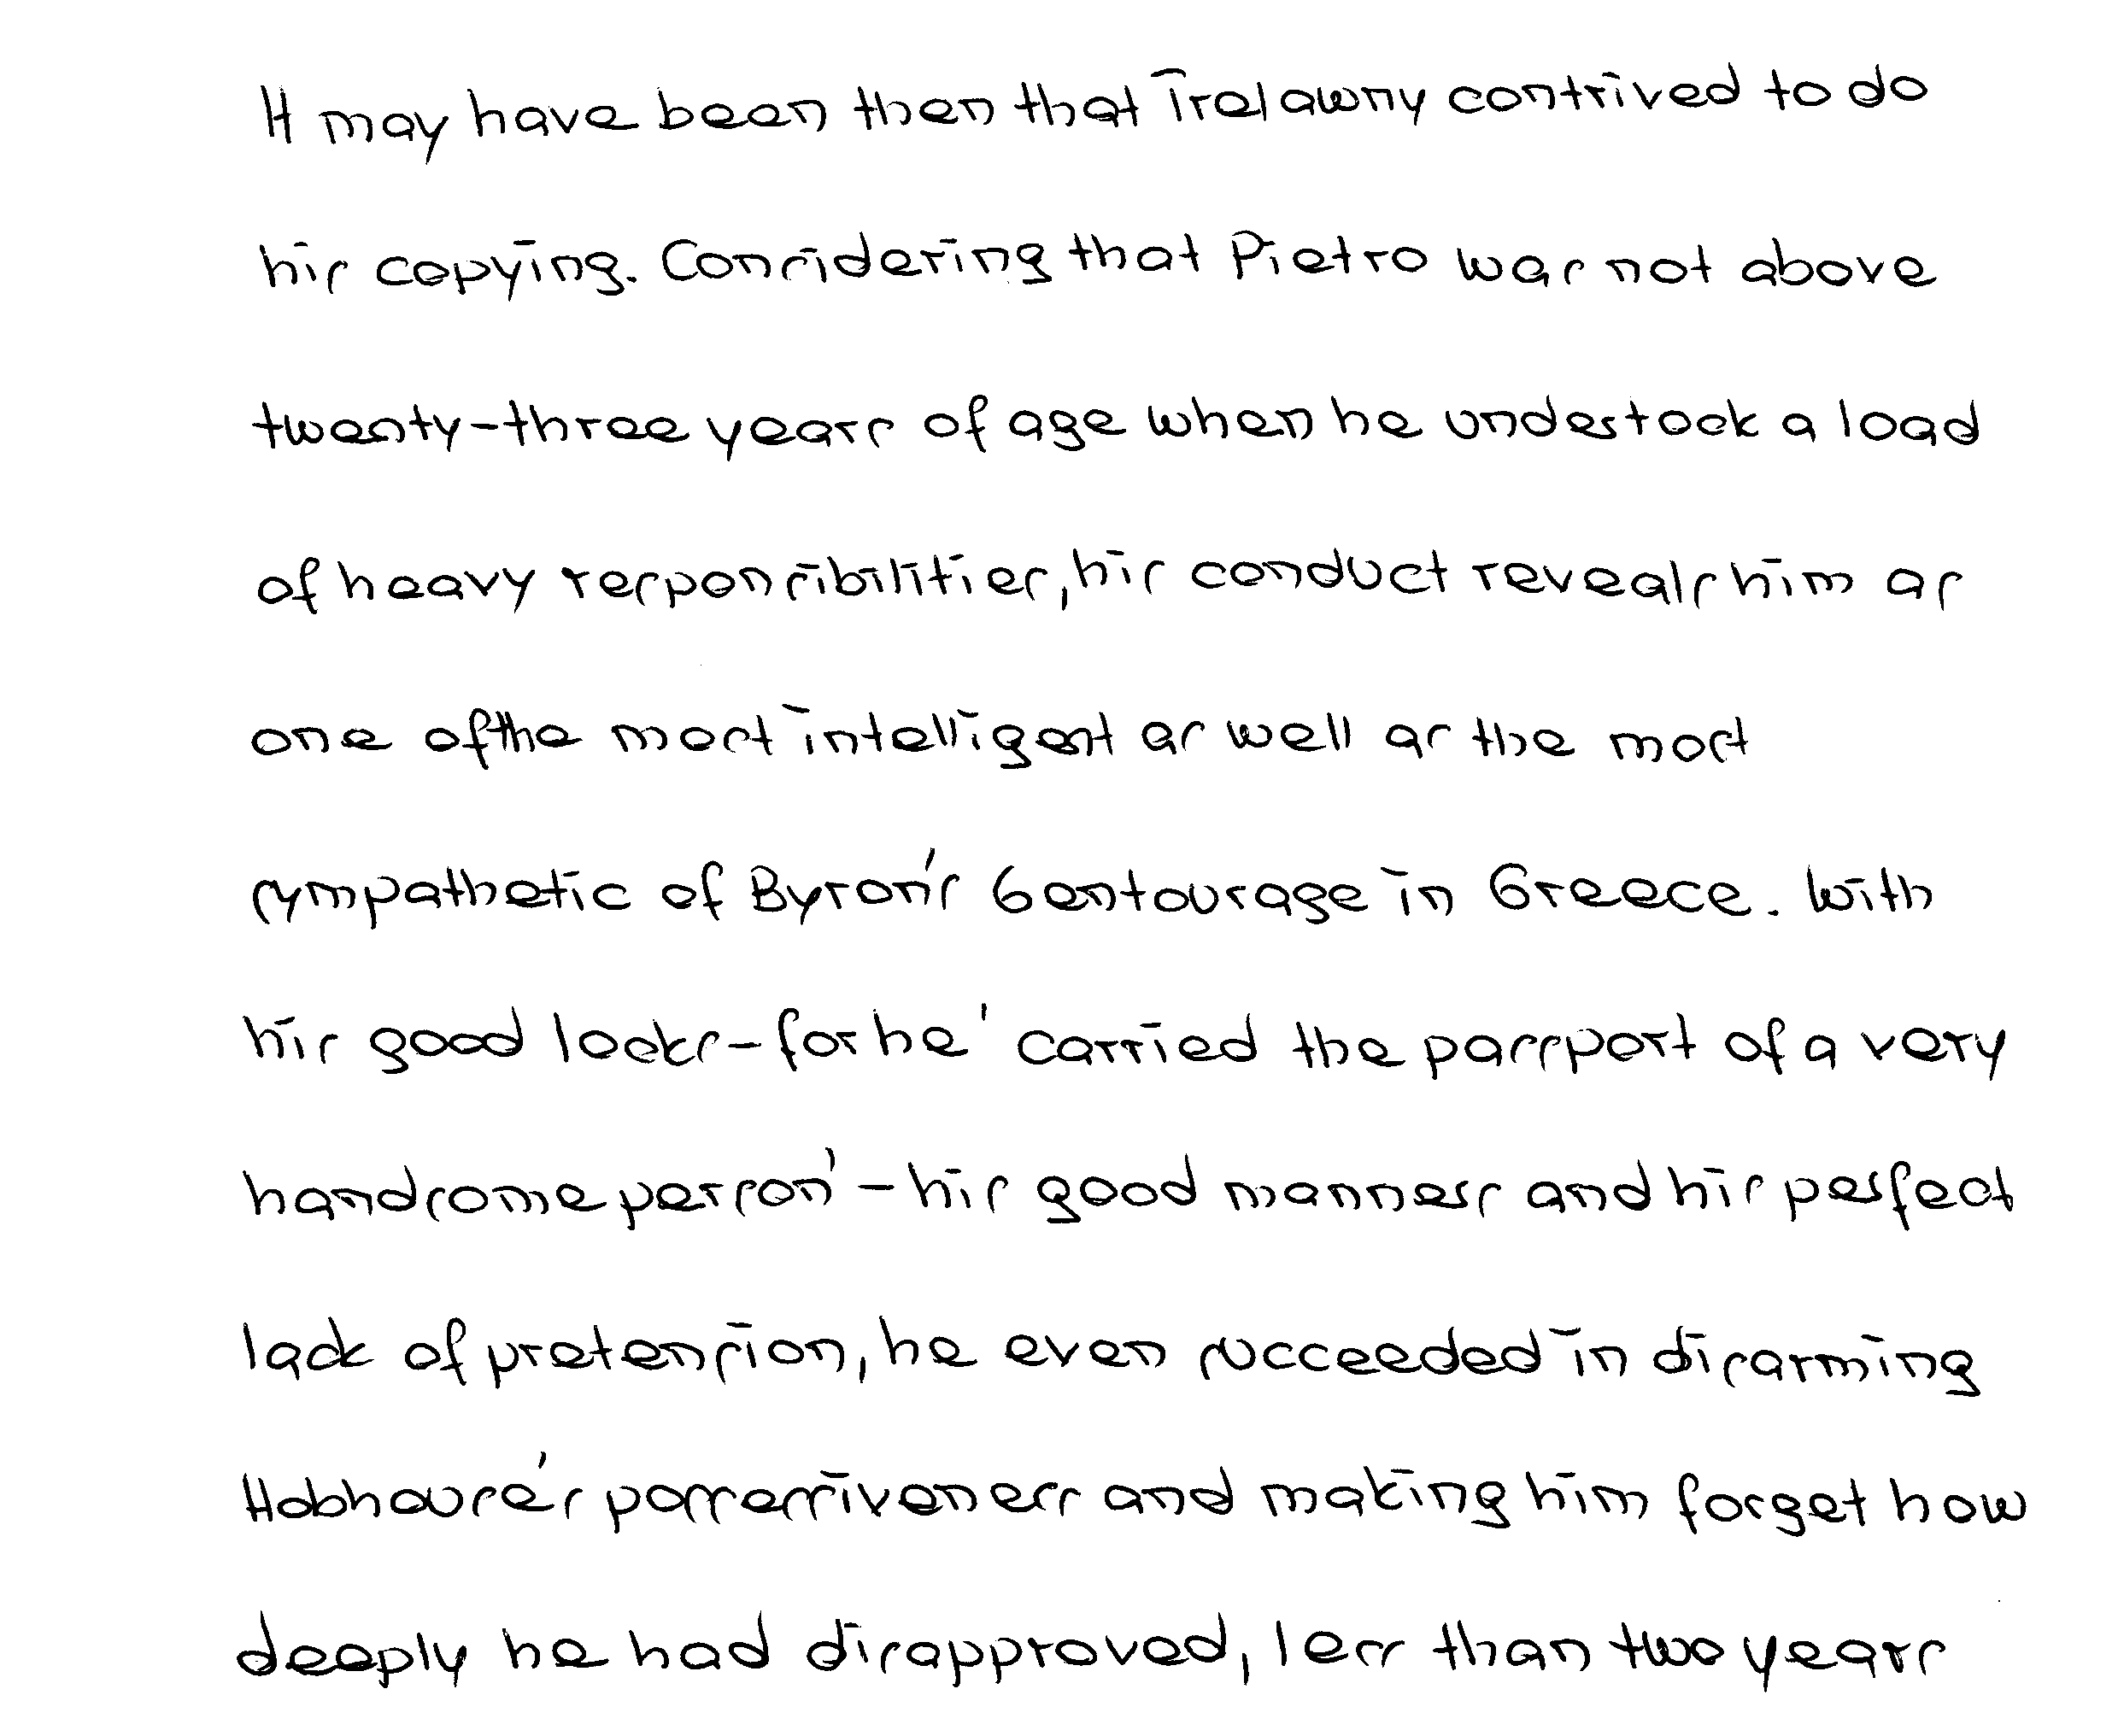 It may have been then that Trelawny contrived to do
his copying. Considering that Pietro was not above
twenty-three years of age when he undertook a load
of heavy responsibilities, his conduct reveals him as
one of the most intelligent as well as the most
sympathetic of Byron's Gentourage in Greece. With
his good looks - for he ' carried the passport of a very
handsome person' - his good manners and his perfect
lack of pretension, he even succeeded in disarming
Hobhouse's possessiveness and making him forget how
deeply he had disapproved, less than two years